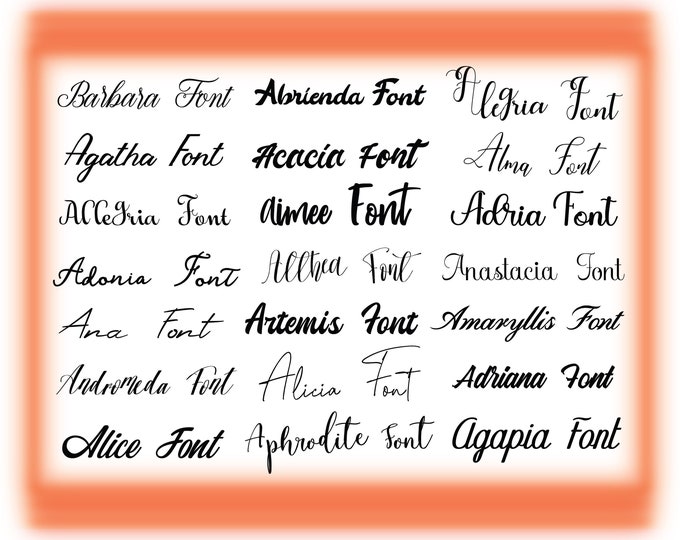 Barbara Font Abrienda Font Alegria Font
Agatha Font Acacia Font Alma Font
Allegria Font aimee Font Adria Font
Adonia Font Allthea Font Anastacia Font
Ana Font Artemis Font Amaryllis Font
Andromeda Font Alicia Font Adriana Font
Alice Font Aphrodite Font agapia Font